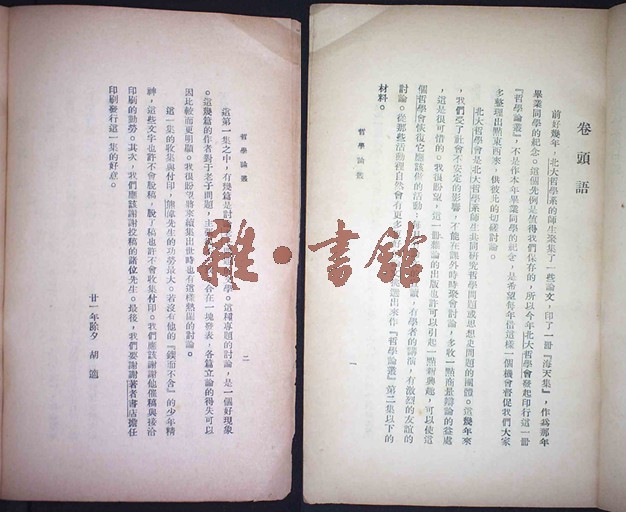 卷頭語
前好幾年，北大哲學系的師生聚集了一些論文，印了一冊『海天集』，作為那年
畢業同學的紀念。這個先例是值得我們保存的，所以今年北大哲學會發起印行這一冊
『哲學論叢』，不是作本年畢業同學的紀念，是希望每年借這樣一個機會督促我們大家
多整理出點東西來，供彼此的切磋討論。
北大哲學會是北大哲學系師生共同研究哲學問題或思想史問題的團體。這幾年來
，我們受了社會不安定的影響，不能在課外時時聚會討論，多收一點商量辯論的益處
，這是很可惜的。我很盼望，這一冊雜論的出版也許可以引起一點新興趣，可以使這
個哲學會恢復它應該有的活動；有 有學者的講演，有激烈的友誼的
討論。從那些活動裡自然會有更多更好 選出來作『哲學論叢』第二集以下的
材料。
哲學論叢
一
哲學論叢
二
這第一集之中，有幾篇是討 學。這種專題的討論，是一個好現象
。這幾篇的作者對于老子問題，主 合在一塊發表，各篇立論的得失可以
因比較而更明顯。我很盼望將來續集出世時也有這樣熱鬧的討論。
這一集的收集與付印，熊偉先生的功勞最大。若沒有他的『鍥而不舍』的少年精
神，這些文字也許不會脫稿，脫了稿也許不會收集付印。我們應該謝謝他催稿與接洽
印刷的勤勞。其次，我們應該謝謝投稿的諸位先生。最後，我們要謝謝著者書店擔任
印刷發行這一集的好意。
廿一年除夕 胡適
雜·書館